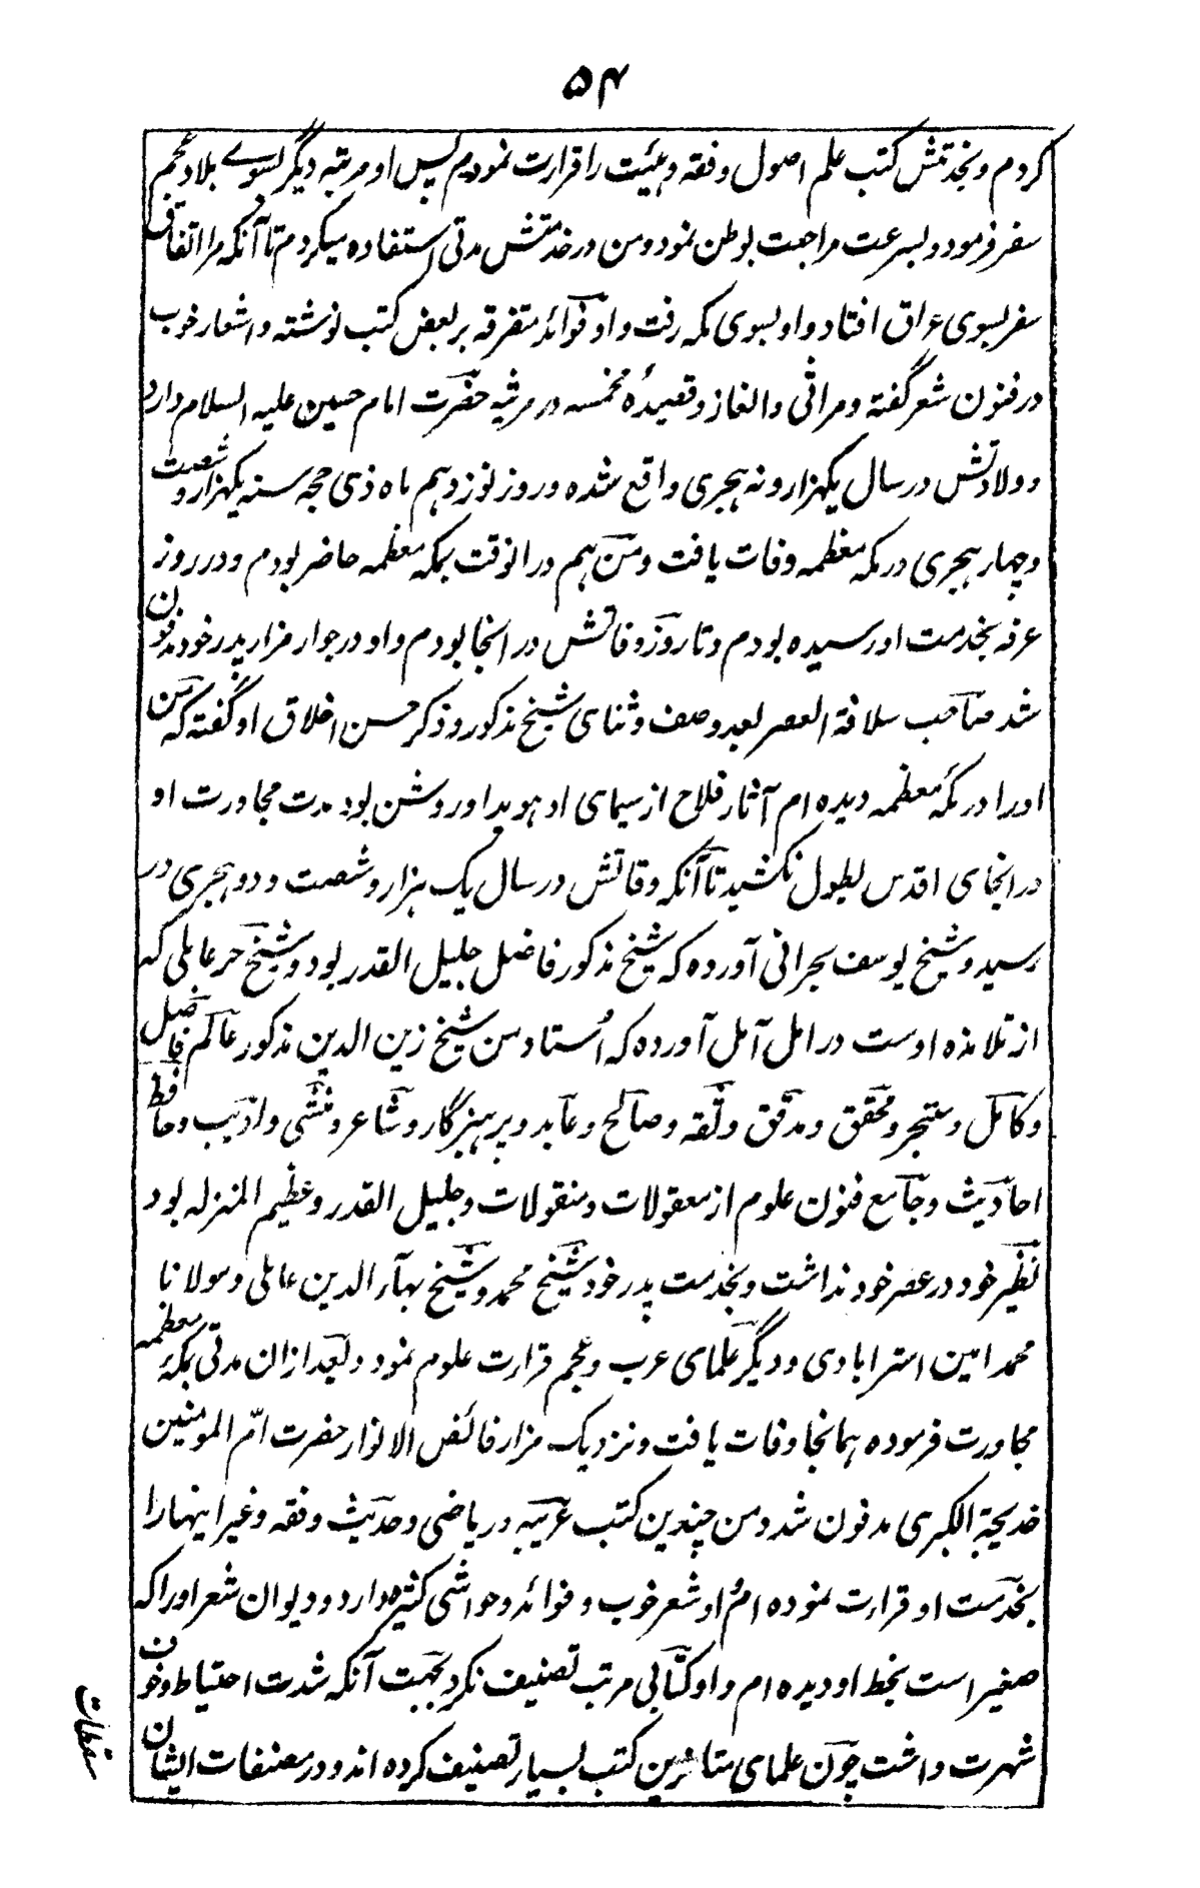 ۵۴
کردم و بخدمتش کتب علم اصول و فقه و هیئت را قرارت نمودیم پس او مرتبه دیگر بسوے بلاد عجم
سفر فرمود و بسرعت مراجعت بوطن نمود و من در خدمتش مدتی استفاده میکردم تا آنکه مرا اتفاق
سفر بسوی عراق افتاد و او بسوی مکه رفت و او فوائد متفرقه بر بعض کتب نوشته و اشعار خوب
در فنون شعر گفته و مراثی و الغاز و قصیدهٔ مخمسه در مرثیه حضرت امام حسین علیه السلام دارد
و ولادتش در سال یکهزار و نه هجری واقع شده و روز نوزدهم ماه ذی حجه سنه یکهزار و شصت
و چهار هجری در مکه معظمه وفات یافت و من هم در انوقت بمکه معظمه حاضر بودم و در روز
عرفه بخدمت او رسیده بودم و تا روز وفاتش در انجا بودم و او در جوار مزار پدر خود مدفون
شد صاحب سلافة العصر بعد وصف و ثنای شیخ مذکور و ذکر حسن اخلاق او گفته که من
اورا در مکهٔ معظمه دیده ام آثار فلاح از سیمای او هویدا و روشن بود مدت مجاورت او
در انجای اقدس بطول نکشید تا آنکه وفاتش در سال یک هزار و شصت و دو هجری در
رسید و شیخ یوسف بحرانی آورده که شیخ مذکور فاضل جلیل القدر بود و شیخ حر عاملی که
از تلامذه اوست در امل آمل آورده که اُستاد من شیخ زین الدین مذکور عالم فاضل
و کامل و متبحر و محقق و مدقق و ثقه و صالح و عابد و پرهیزگار و شاعر و منشی و ادیب و حافظ
احادیث و جامع فنون علوم از معقولات و منقولات و جلیل القدر و عظیم المنزله بود
نظیر خود در عصر خود نداشت و بخدمت پدر خود شیخ محمد و شیخ بهآء الدین عاملی و مولانا
محمد امین استرابادی و دیگر علمای عرب و عجم قرارت علوم نمود و بعد ازان مدتی بمکهٔ معظمه
مجاورت فرموده همانجا وفات یافت و نزدیک مزار فائض الانوار حضرت امّ المومنین
خدیجة الکبری مدفون شد و من چندین کتب عربیه و ریاضی و حدیث و فقه و غیر اینها را
بخدمت او قرارت نموده امُ او شعر خوب و فوائد و حواشی کثیره دارد و دیوان شعر اورا که
صغیر است بخط او دیده ام و او کتابی مرتب تصنیف نکرد بجهت آنکه شدت احتیاط و خون
شهرت داشت چون علمای متاخرین کتب بسیار تصنیف کرده اند و در مصنفات ایشان
سقطات